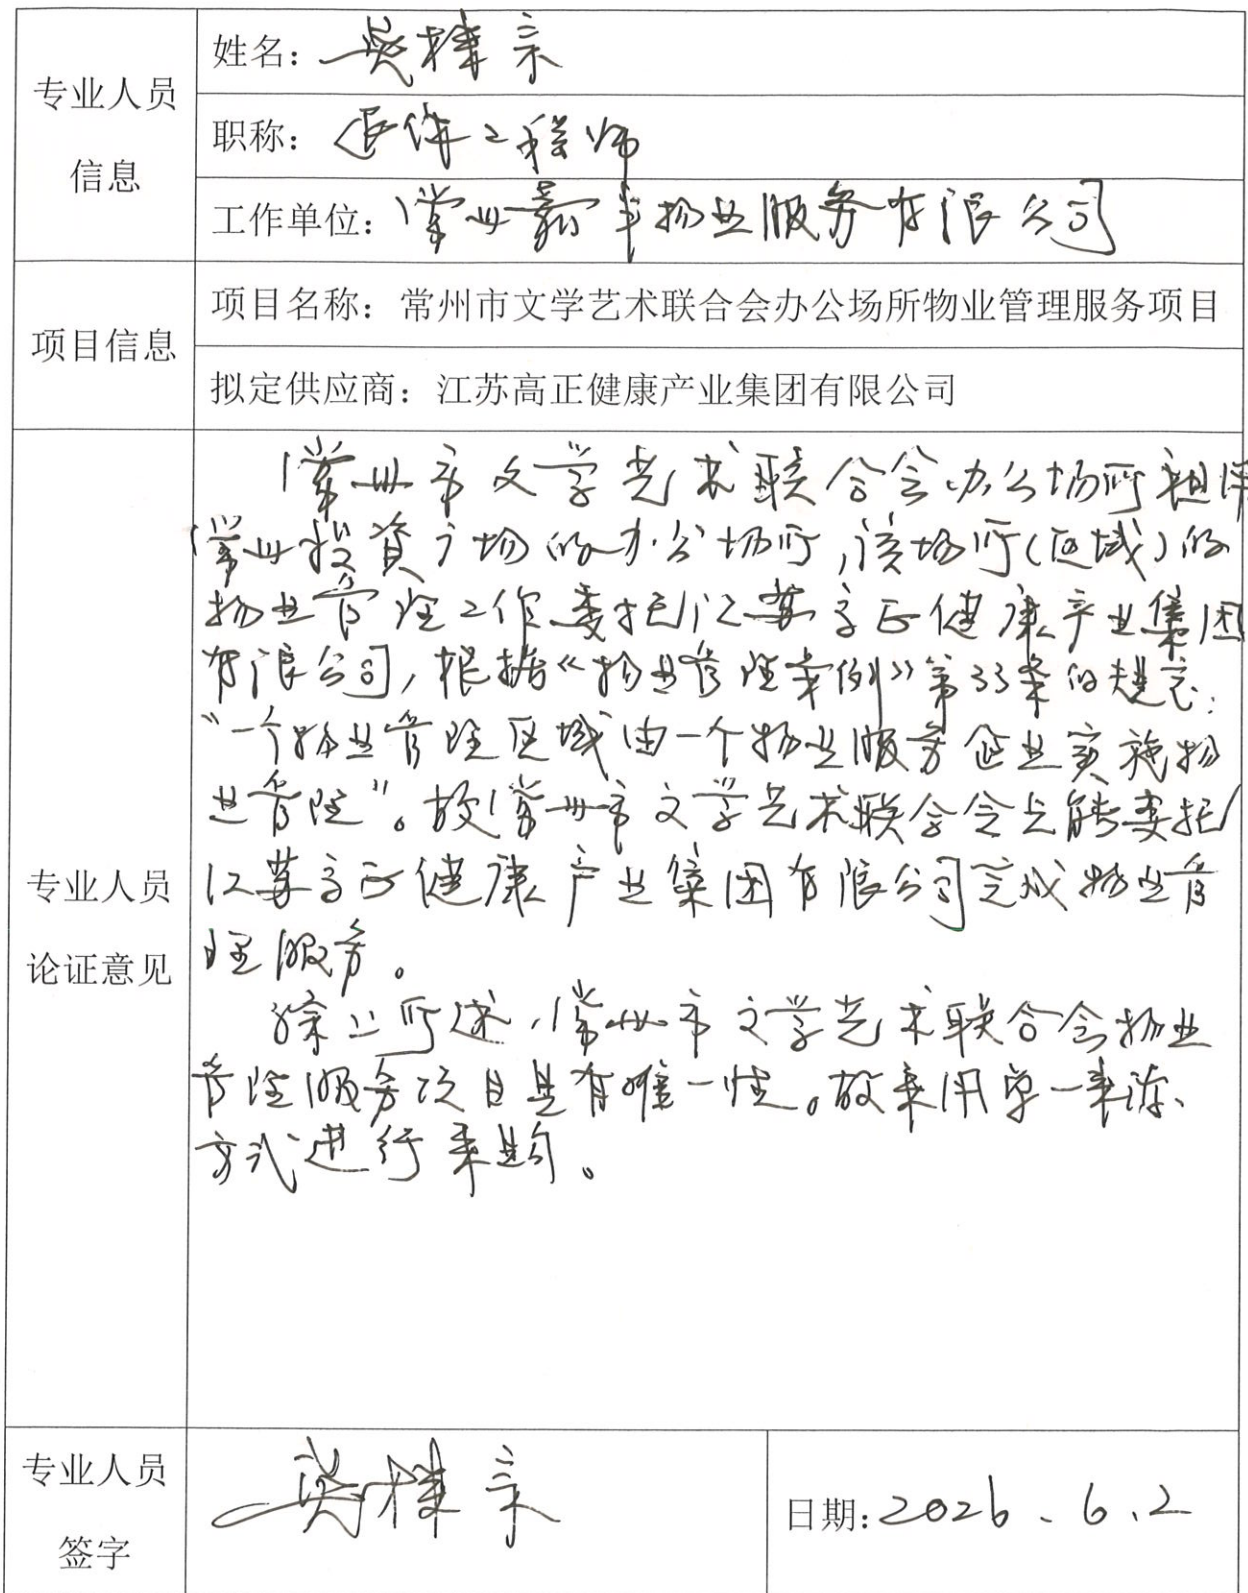 专业人员
信息
姓名：
职称：工程师
工作单位：常州嘉丰物业服务有限公司
项目信息
项目名称：常州市文学艺术联合会办公场所物业管理服务项目
拟定供应商：江苏高正健康产业集团有限公司
专业人员
论证意见
常州市文学艺术联合会办公场所租用
常州投资广场的办公场所，该场所（区域）的
物业管理工作委托江苏高正健康产业集团
有限公司，根据《物业管理条例》第33条的规定：
“一个物业管理区域由一个物业服务企业实施物
业管理”。故常州市文学艺术联合会只能委托
江苏高正健康产业集团有限公司完成物业管
理服务。
综上所述，常州市文学艺术联合会物业
管理服务项目具有唯一性。故采用单一来源
方式进行采购。
专业人员
签字
日期：2026.6.2